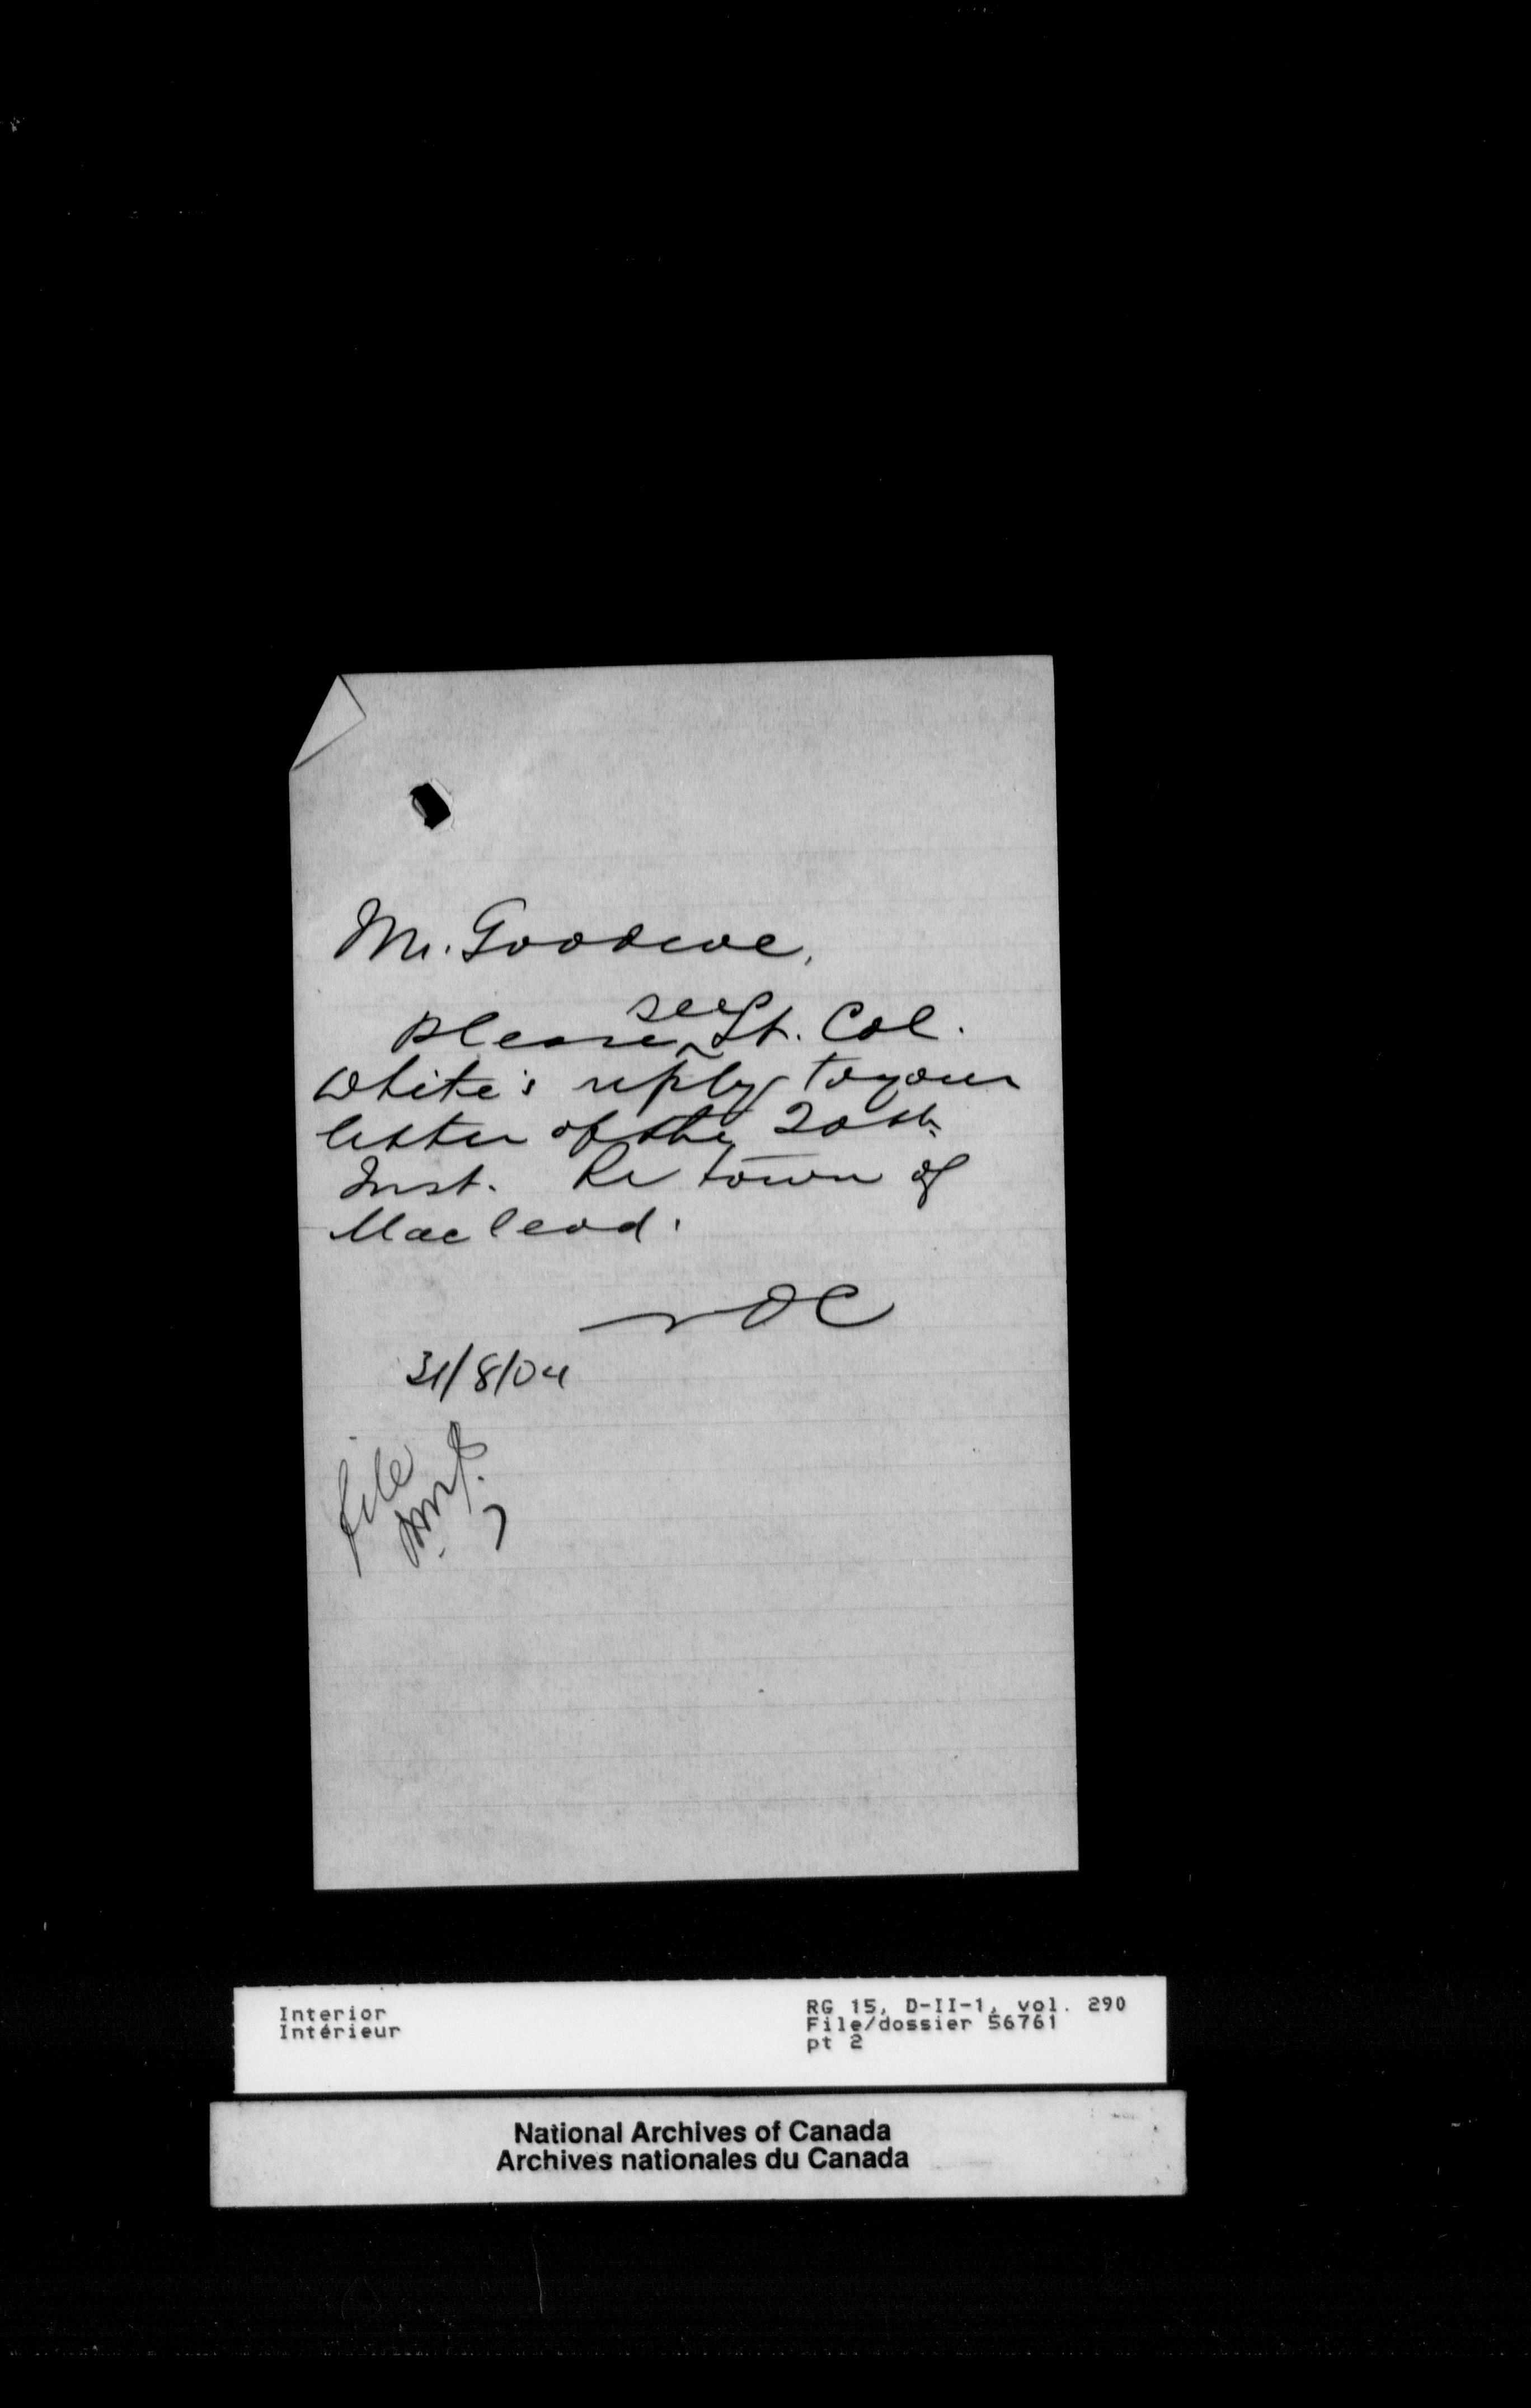 Mr. Goodeve,
Please see Lt. Col.
White's reply to your
letter of the 20th
Inst. Re town of
Macleod.
31/8/04
File
Interior
Intérieur
RG 15, D-II-1, vol. 290
File/dossier 56761
pt 2
National Archives of Canada
Archives nationales du Canada